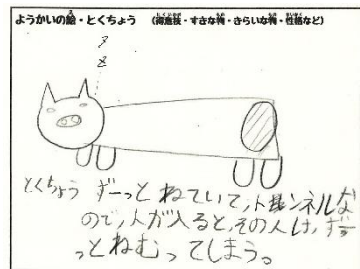 ようかいの絵・とくちょう （得意技・すきな物・きらいな物・性格など）
z
z
とくちょう ずーっとねていて、トンネルな
ので、人が入ると、その人は、ずー
っとねむってしまう。